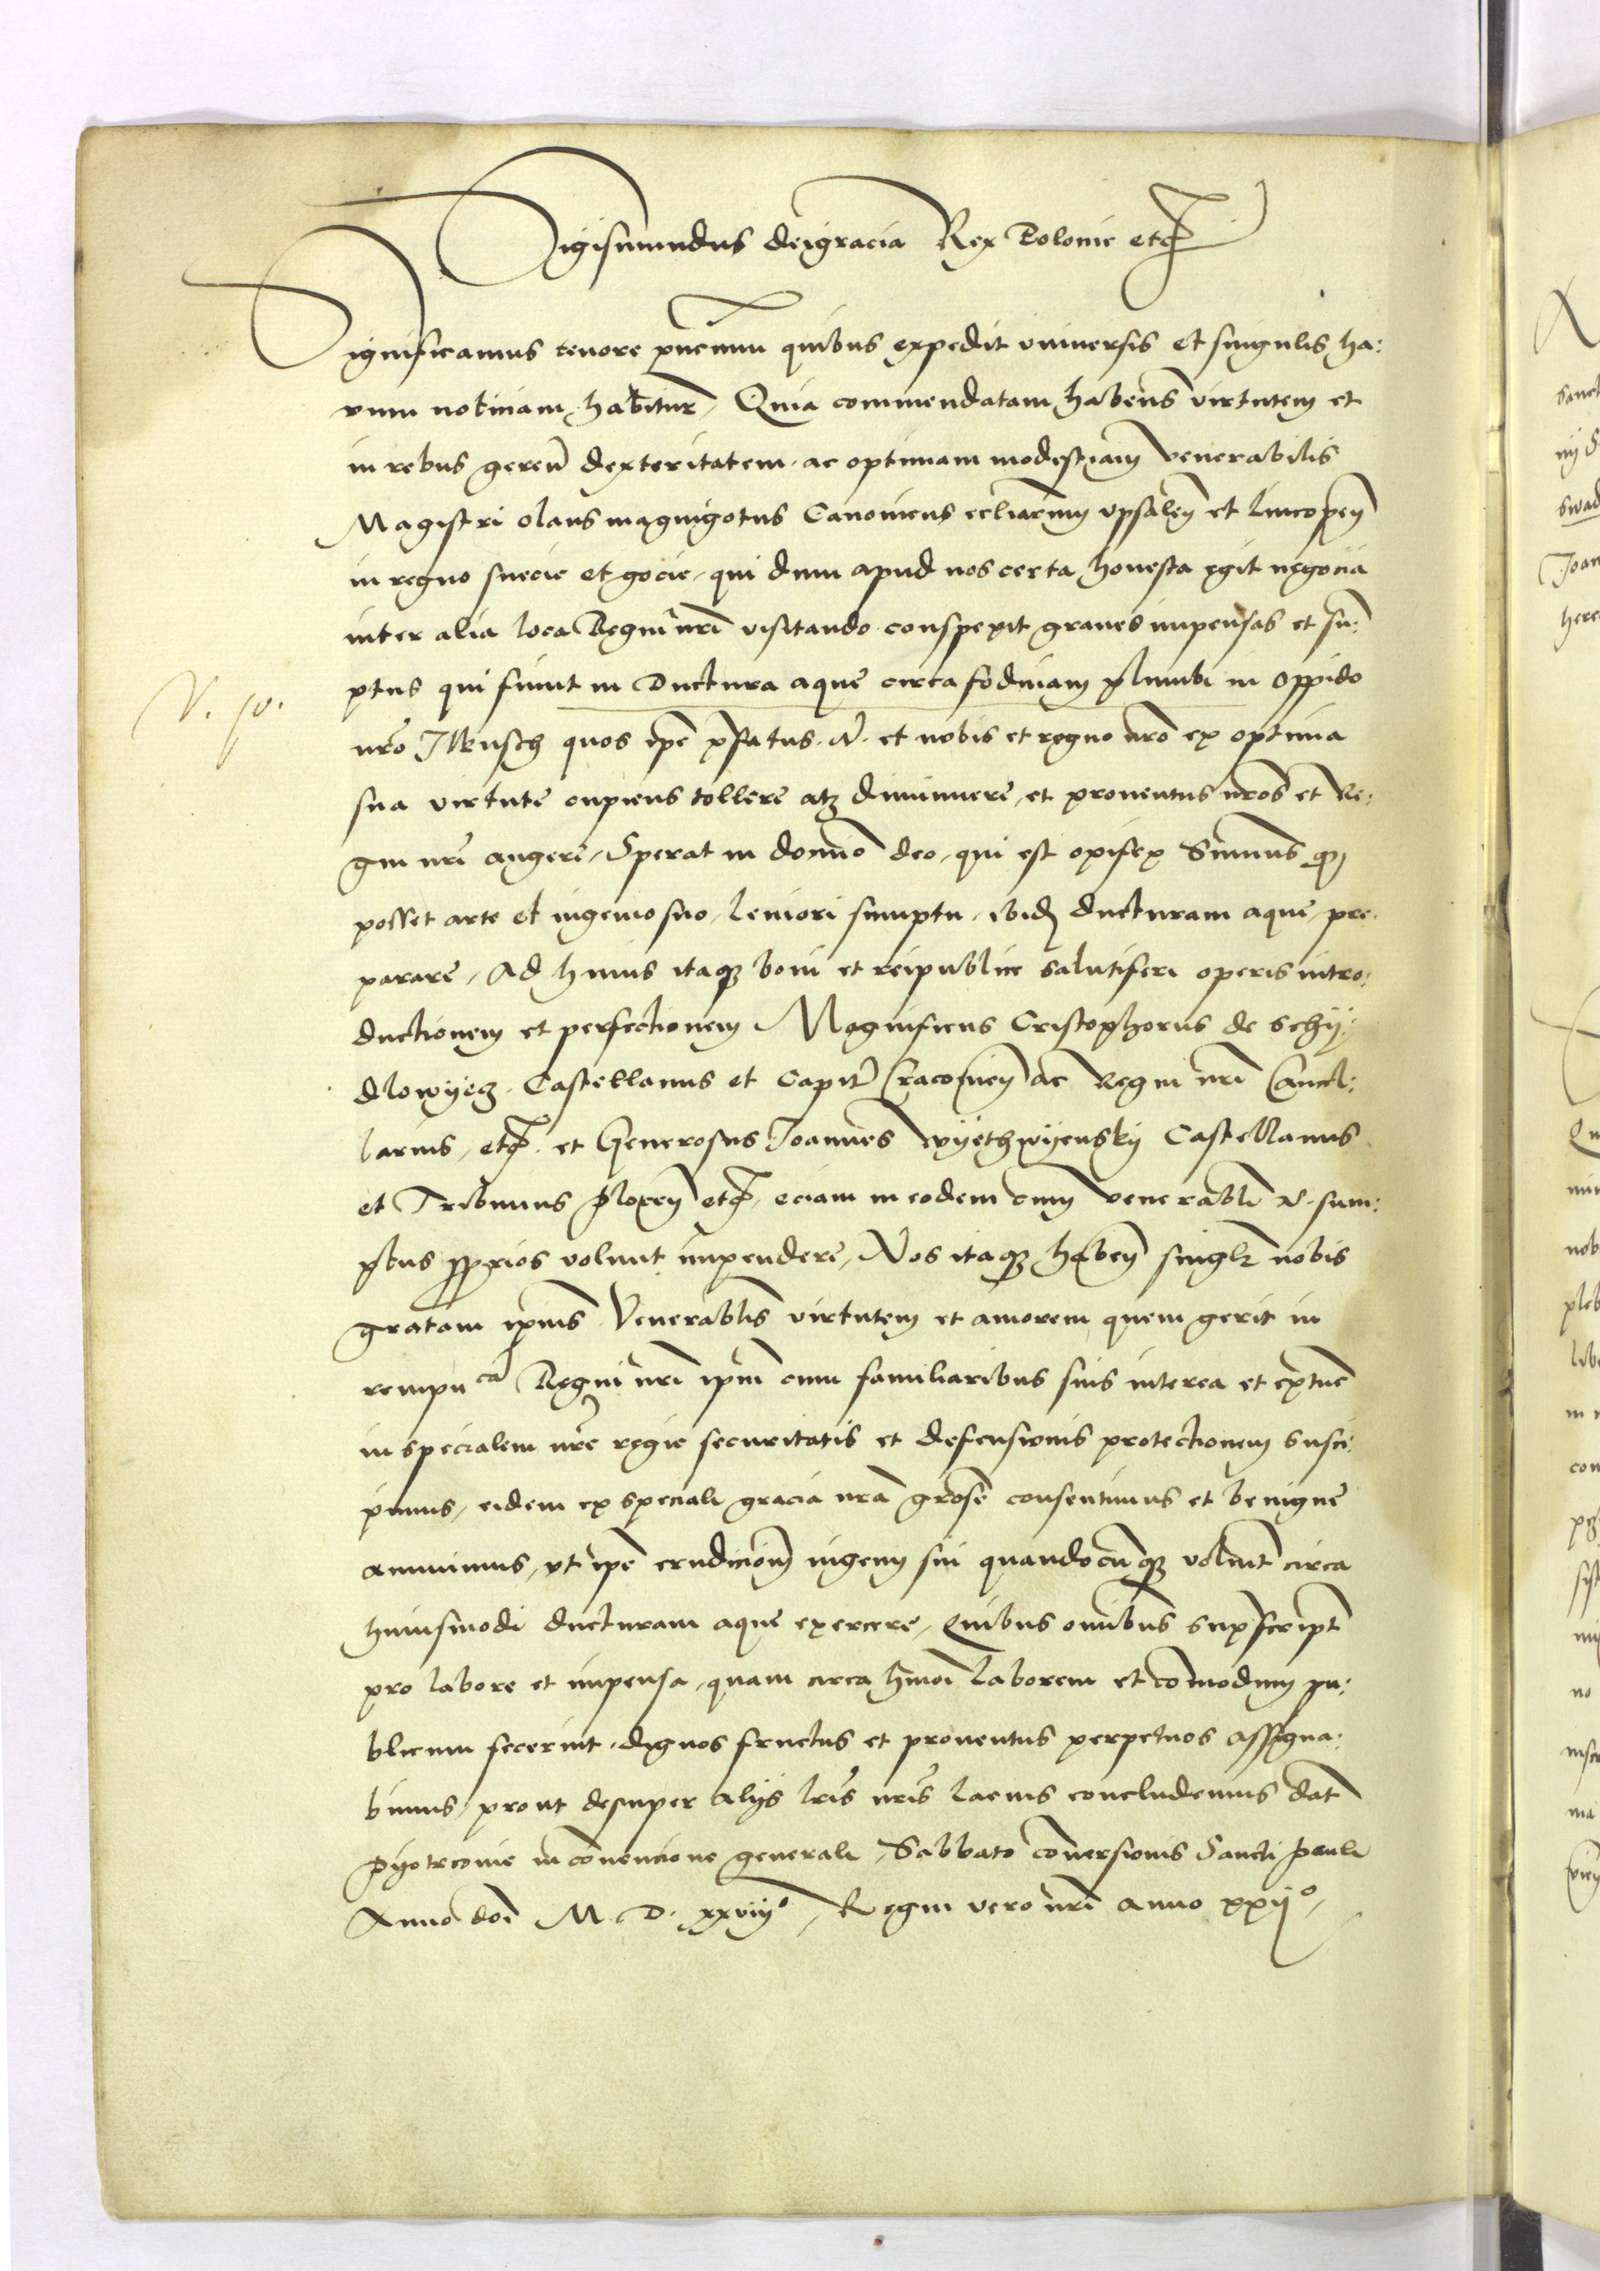 Sigismundus dei gracia Rex Polonie etc
Significamus tenore pñcium quibus expedit vniuersis et singulis ha:
rum noticiam habitur̃, Quia commendatam habens virtutem et
in rebus gereñ dexteritatem, ac optimam modestiam venerabilis
Magistri olaus magnigotus Canonicus eccliarum vpsaleñ et lincopeñ
in regno suecie et gocie, qui dum apud nos certa honesta egit negocia
inter alia loca Regni nrĩ visitando conspexit graues impensas et su:
ptus qui fiunt in ductura aque circa fodinam plumbi in oppido
nrõ Ilkusch quos ipẽ p̃fatus .N. et nobis et regno nrõ ex optima
sua virtute cupiens tollere atq̃ diminuere, et prouentus nrõs et Re:
gni nrĩ augere, Sperat in domino deo, qui est opifex Summus q̃
posset arte et ingenio suo, leniori sumptu, ibidẽ ducturam aque, pre
parare, Ad huius itaq̃ boni et reipublice salutiferi operis intro:
ductionem et perfectionem Magnificus Cristophorus de Schÿ:
dlowÿecz, Castellanus et Capit̃ Cracouieñ ac Regni nrĩ Cancel:
larius, etc. et Generosus Joannes wÿethwÿenskÿ Castellanus
et Tribunus ploceñ etc, eciam in eodem cum venerabli N. sum:
ptus proprios volunt impendere, Nos itaq̃ habeñ singlr̃ nobis
gratam ipsius Venerablis virtutem et amorem quem gerit in
rempucã Regni nrĩ ipm̃ cum familiaribus suis interea et extunc
in specialem nrẽ regie securitatis et defensionis protectionem susci:
pimus, eidem ex speciali gracia nrã grõse consentimus et benigne
annuimus, vt ipẽ erudicionẽ ingenij sui quandocunq̃ voluit circa
huiusmodi ducturam aque exercere, Quibus omnibus suprascript̃
pro labore et impensa, quam circa hmõi laborem et comodum pu:
blicum fecerint, dignos fructus et prouentus perpetuos assigna:
bimus, prout desuper alijs lrĩs nrĩs lacius concludemus dat̃
pÿotrcouie in conuencione generali, Sabbato conuersionis Sancti pauli
Anno doĩ M. D. xxviijº, Regni vero nrĩ anno xxijº,